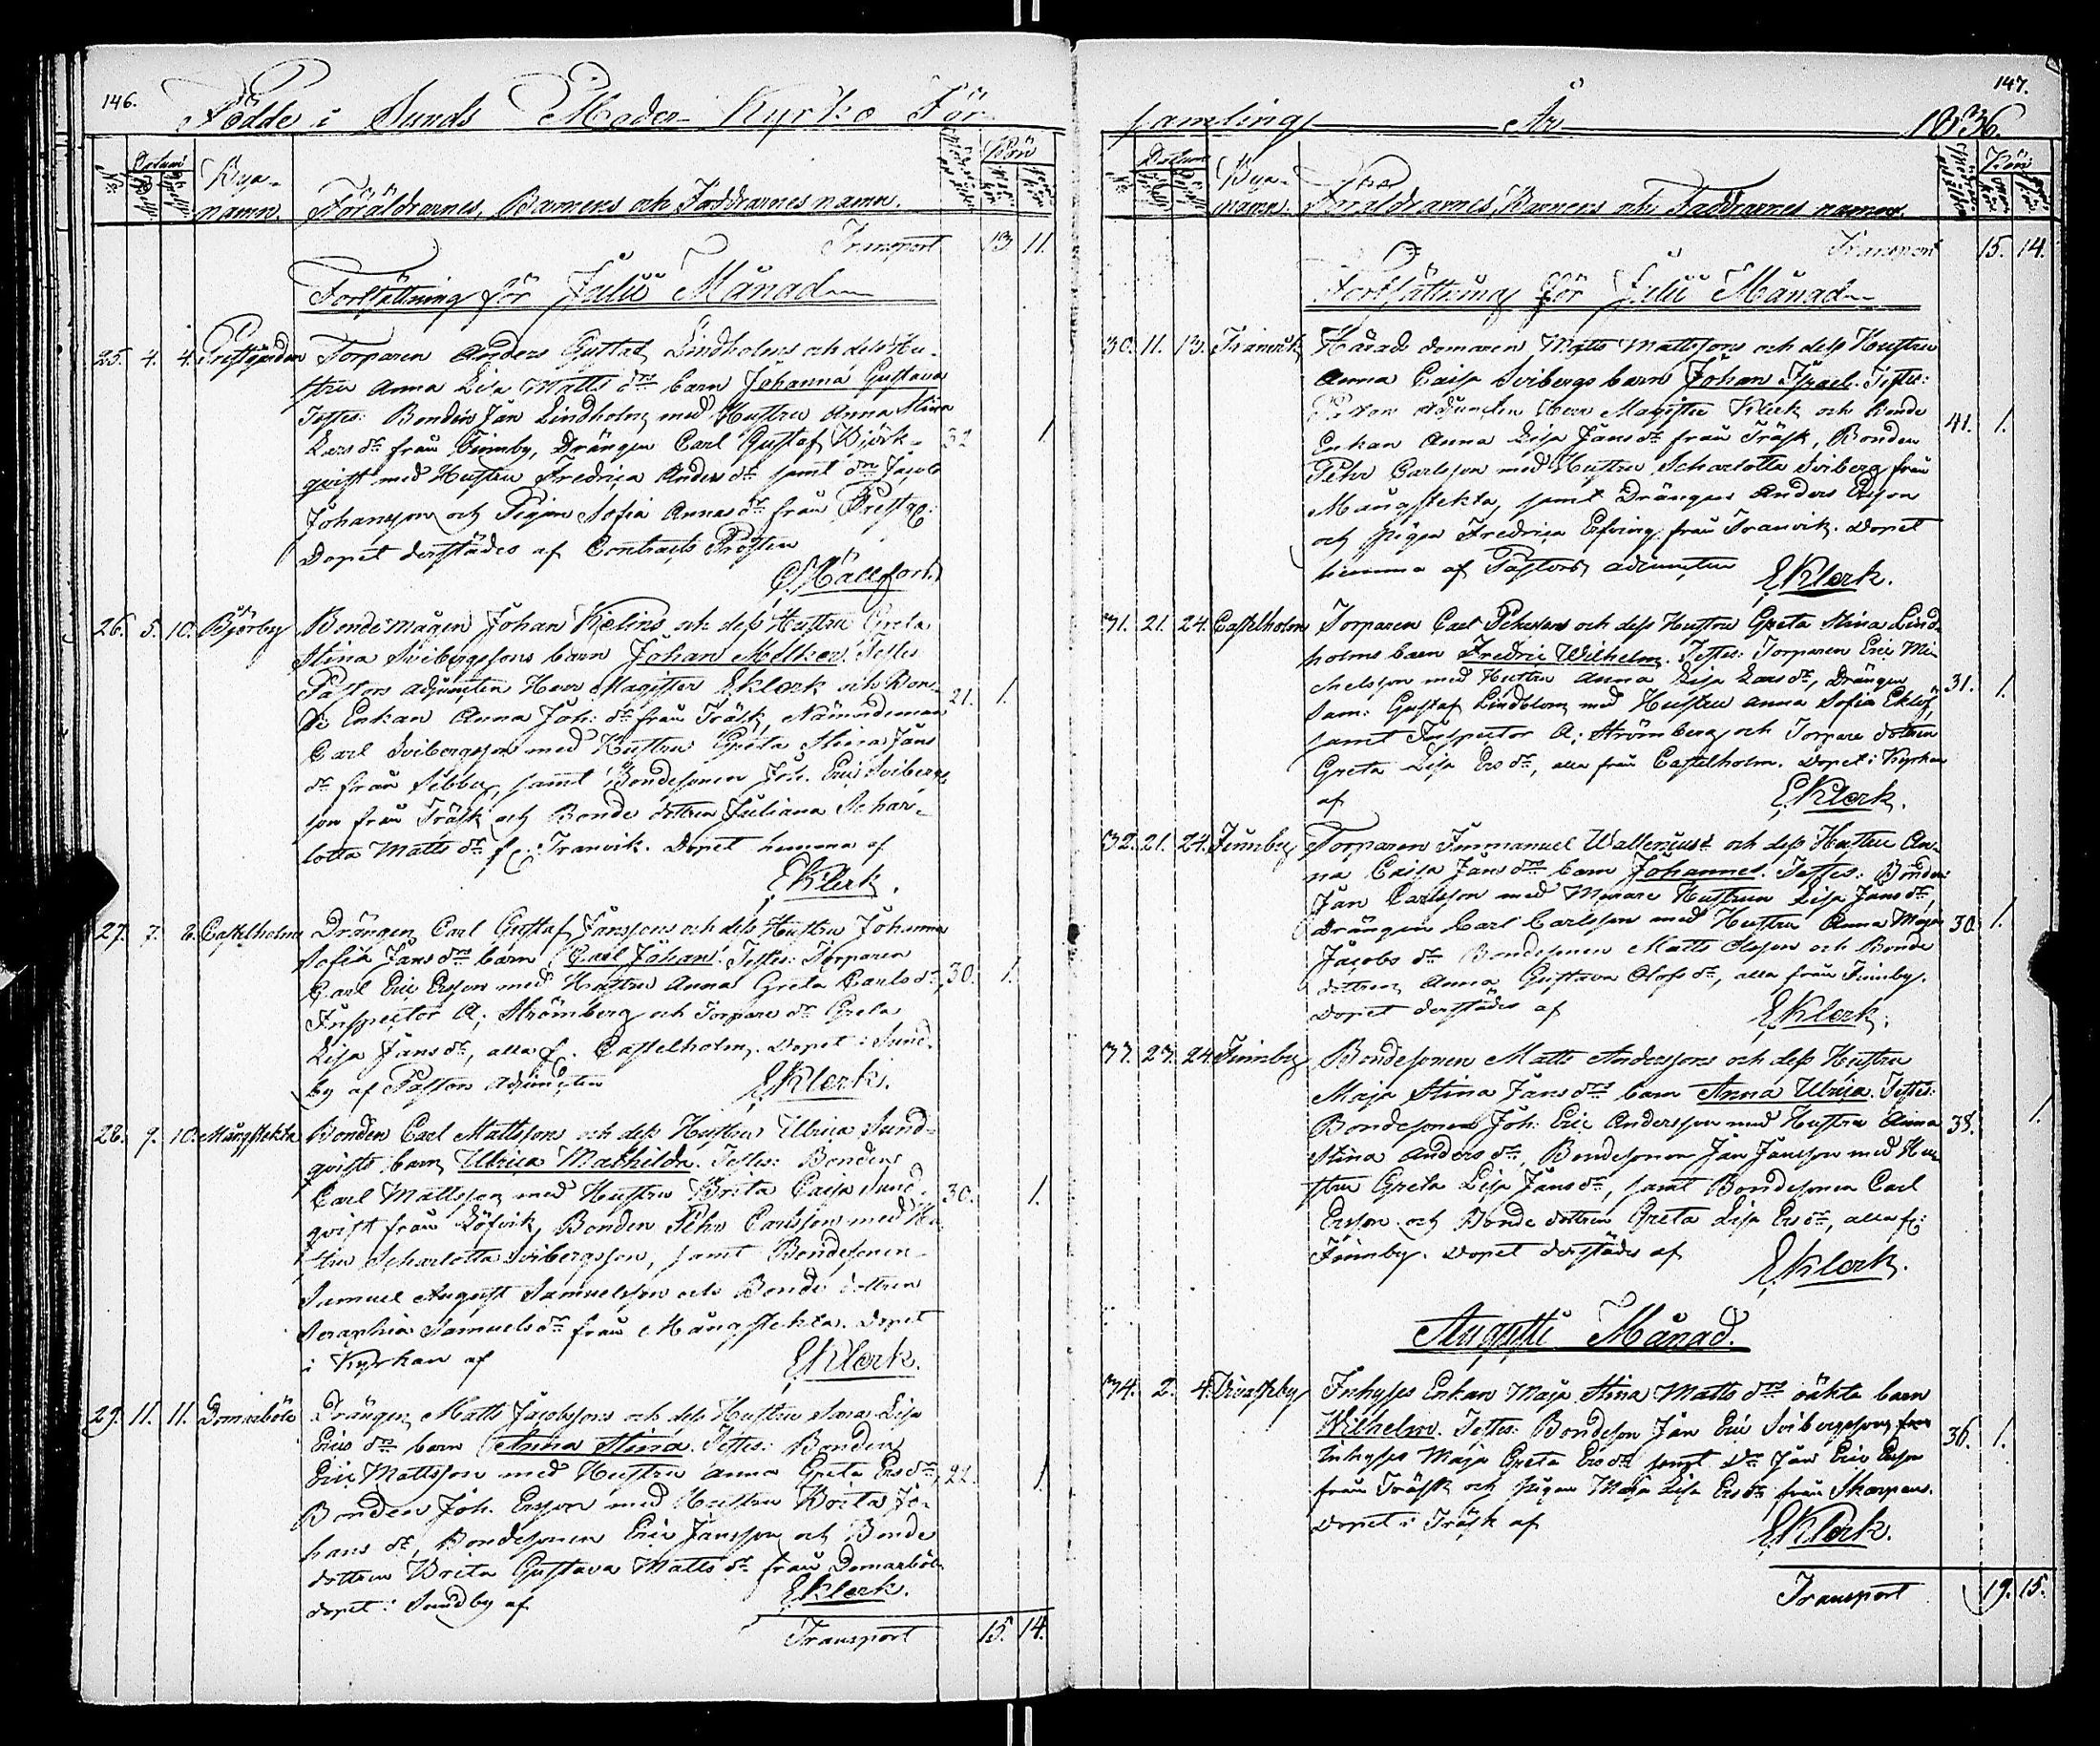 146.
Födde i Sunds Moder Kyrko För-
No
Datum
Bya-
namn.
Föräldrarnes, Barnens och Faddrarnes namn.
Kön
Transport 13 11.
Fortsättning för Julii Månad
25. 4. 4. Prestgården Torparen Anders Gustaf Lindholms och dess Hu-
stru Anna Lisa Matts drs barn Johanna Gustava
Testes: Bonden Jan Lindholm med Hustru Anna Stina
Lars dr från Finnby, Drängen Carl Gustaf Björk- 32 1
qvist med Hustru Fredrica Anders dr samt drn Jacob
Johansson och Pigan Sofia Annas dr från Prestg:
Döpet derstädes af Contracts Prosten
26. 5. 10. Bjerby Bondemågen Johan Kjelins och dess Hustru Greta
Stina Svibergssons barn Johan Melker. Testes
Pastors adjuncten Herr Magister Eklerk och Bon- 21. 1.
de Enkan Anna Joh: dr från Träsk, Nämndeman
Carl Svibergsson med Hustru Greta Stina Jans
dr från Sibby, samt Bondesonen Joh. Eric Svibergs
son från Träsk och Bonde dottren Juliana Schar-
lotta Matts dr fr: Tranvik. Döpet hemma af
Eklerk.
27. 7. 8. Castelholm Drängen Carl Gustaf Janssons och dess Hustru Johanna
Sofia Jans drs barn Carl Johan. Testes: Torparen
Carl Eric Ersson med Hustru Anna Greta Carls dr, 30. 1.
Inspector A; Strömberg och Torpare dr Greta
Lisa Jans dr, alla f. Castelholm. Döpet i Sund-
by af Pastors Adjuncten Eklerk.
28. 9. 10. Mångstekta Bonden Carl Mattssons och dess Hustru Ulrica Sund-
qvists barn Ulrica Mathilda. Testes: Bonden
Carl Mattsson med Hustru Brita Caisa Sund- 30. 1.
qvist från Löfvik, Bonden Pehr Carlsson med Hu-
stru Scharlotta Svibergsson, samt Bondesonen
Samuel August Samuelsson och Bonde dottren
Seraphia Samuels dr från Mångstekta. Döpet
i Kyrkan af Eklerk.
29. 11. 11. Domarböle Drängen Matts Jacobssons och dess Hustru Anna Lisa
Erics drs barn Anna Stina. Testes: Bonden
Eric Mattsson med Hustru Anna Greta Ers dr, 22. 1
Bonden Joh. Ersson med Hustru Brita Jo-
hans dr, Bondesonen Eric Jansson och Bonde
dottren Brita Gustava Matts dr från Domarböle
döpet i Sundby af Eklerk.
Transport 15. 14.
147.
samling År 1836.
No
Datum
Bya-
namn.
Föräldrarnes, Barnens och Faddrarnes namn.
Kön
Transport 15. 14.
Fortsättning för Julii Månad
30. 11. 13. Tranvik Härads domaren Matts Mattssons och dess Hustru
Anna Caisa Svibergs barn Johan Israel. Testes:
Pastors Adjuncten Herr Magister Eklerk och Bonde 41. 1.
Enkan Anna Lisa Jans dr från Träsk, Bonden
Pehr Carlsson med Hustru Scharlotta Sviberg från
Mångstekta, samt Drängen Anders Ersson
och Pigan Fredrica Elfving från Tranvik. Döpet
hemma af Pastors adjuncten Eklerk.
31. 21. 24. Castelholm Torparen Carl och dess Hustru Greta Stina Lind-
holms barn Fredric Wilhelm. Testes: Torparen Eric Mi-
chelsson med Hustru Anna Lisa Lars dr, Drängen 31. 1.
Sam: Gustaf Lindblom med Hustru Anna Sofia Eklöf,
samt Inspector A; Strömberg och Torpare dottren
Greta Lisa Ers dr, alla från Castelholm. Döpet i Kyrkan
af Eklerk.
32. 21. 24. Finnby Torparen Immanuel Wallerius's och dess Hustru An-
na Caisa Jans drs barn Johannes. Testes: Bonden
Jan Carlsson med Hustrun Lisa Jans dr,
Drängen Carl Carlsson med Hustru Anna Maja 30. 1.
Jacobs dr Bondesonen Matts Olsson och Bonde
dottren Anna Gustava Olofs dr, alla från Finnby.
Döpet derstädes af Eklerk.
33. 23. 24. Finnby Bondesonen Matts Anderssons och dess Hustru
Maja Stina Jans drs barn Anna Ulrica. Testes:
Bondesonen Joh: Eric Andersson med Hustru Anna 38. 1.
Stina Anders dr, Bondesonen Jan Jansson med Hu-
stru Greta Lisa Jans dr, samt Bondesonen Carl
Ersson och Bonde dottren Greta Lisa Ers dr, alla fr:
Finnby. Döpet derstädes af Eklerk.
Augusti Månad.
34. 2. 4. Inhyses Enkan Maja Stina Matts drs oäkta barn
Wilhelm. Testes: Bondeson Jan Eric Svibergsson 36. 1.
Inhyses Maja Greta Ers dr samt Dr Jan Eric Ersson
från Träsk och Pigan Maja Lisa Ers dr från Skarpans.
Döpet i Träsk af Eklerk.
Transport 19. 15.